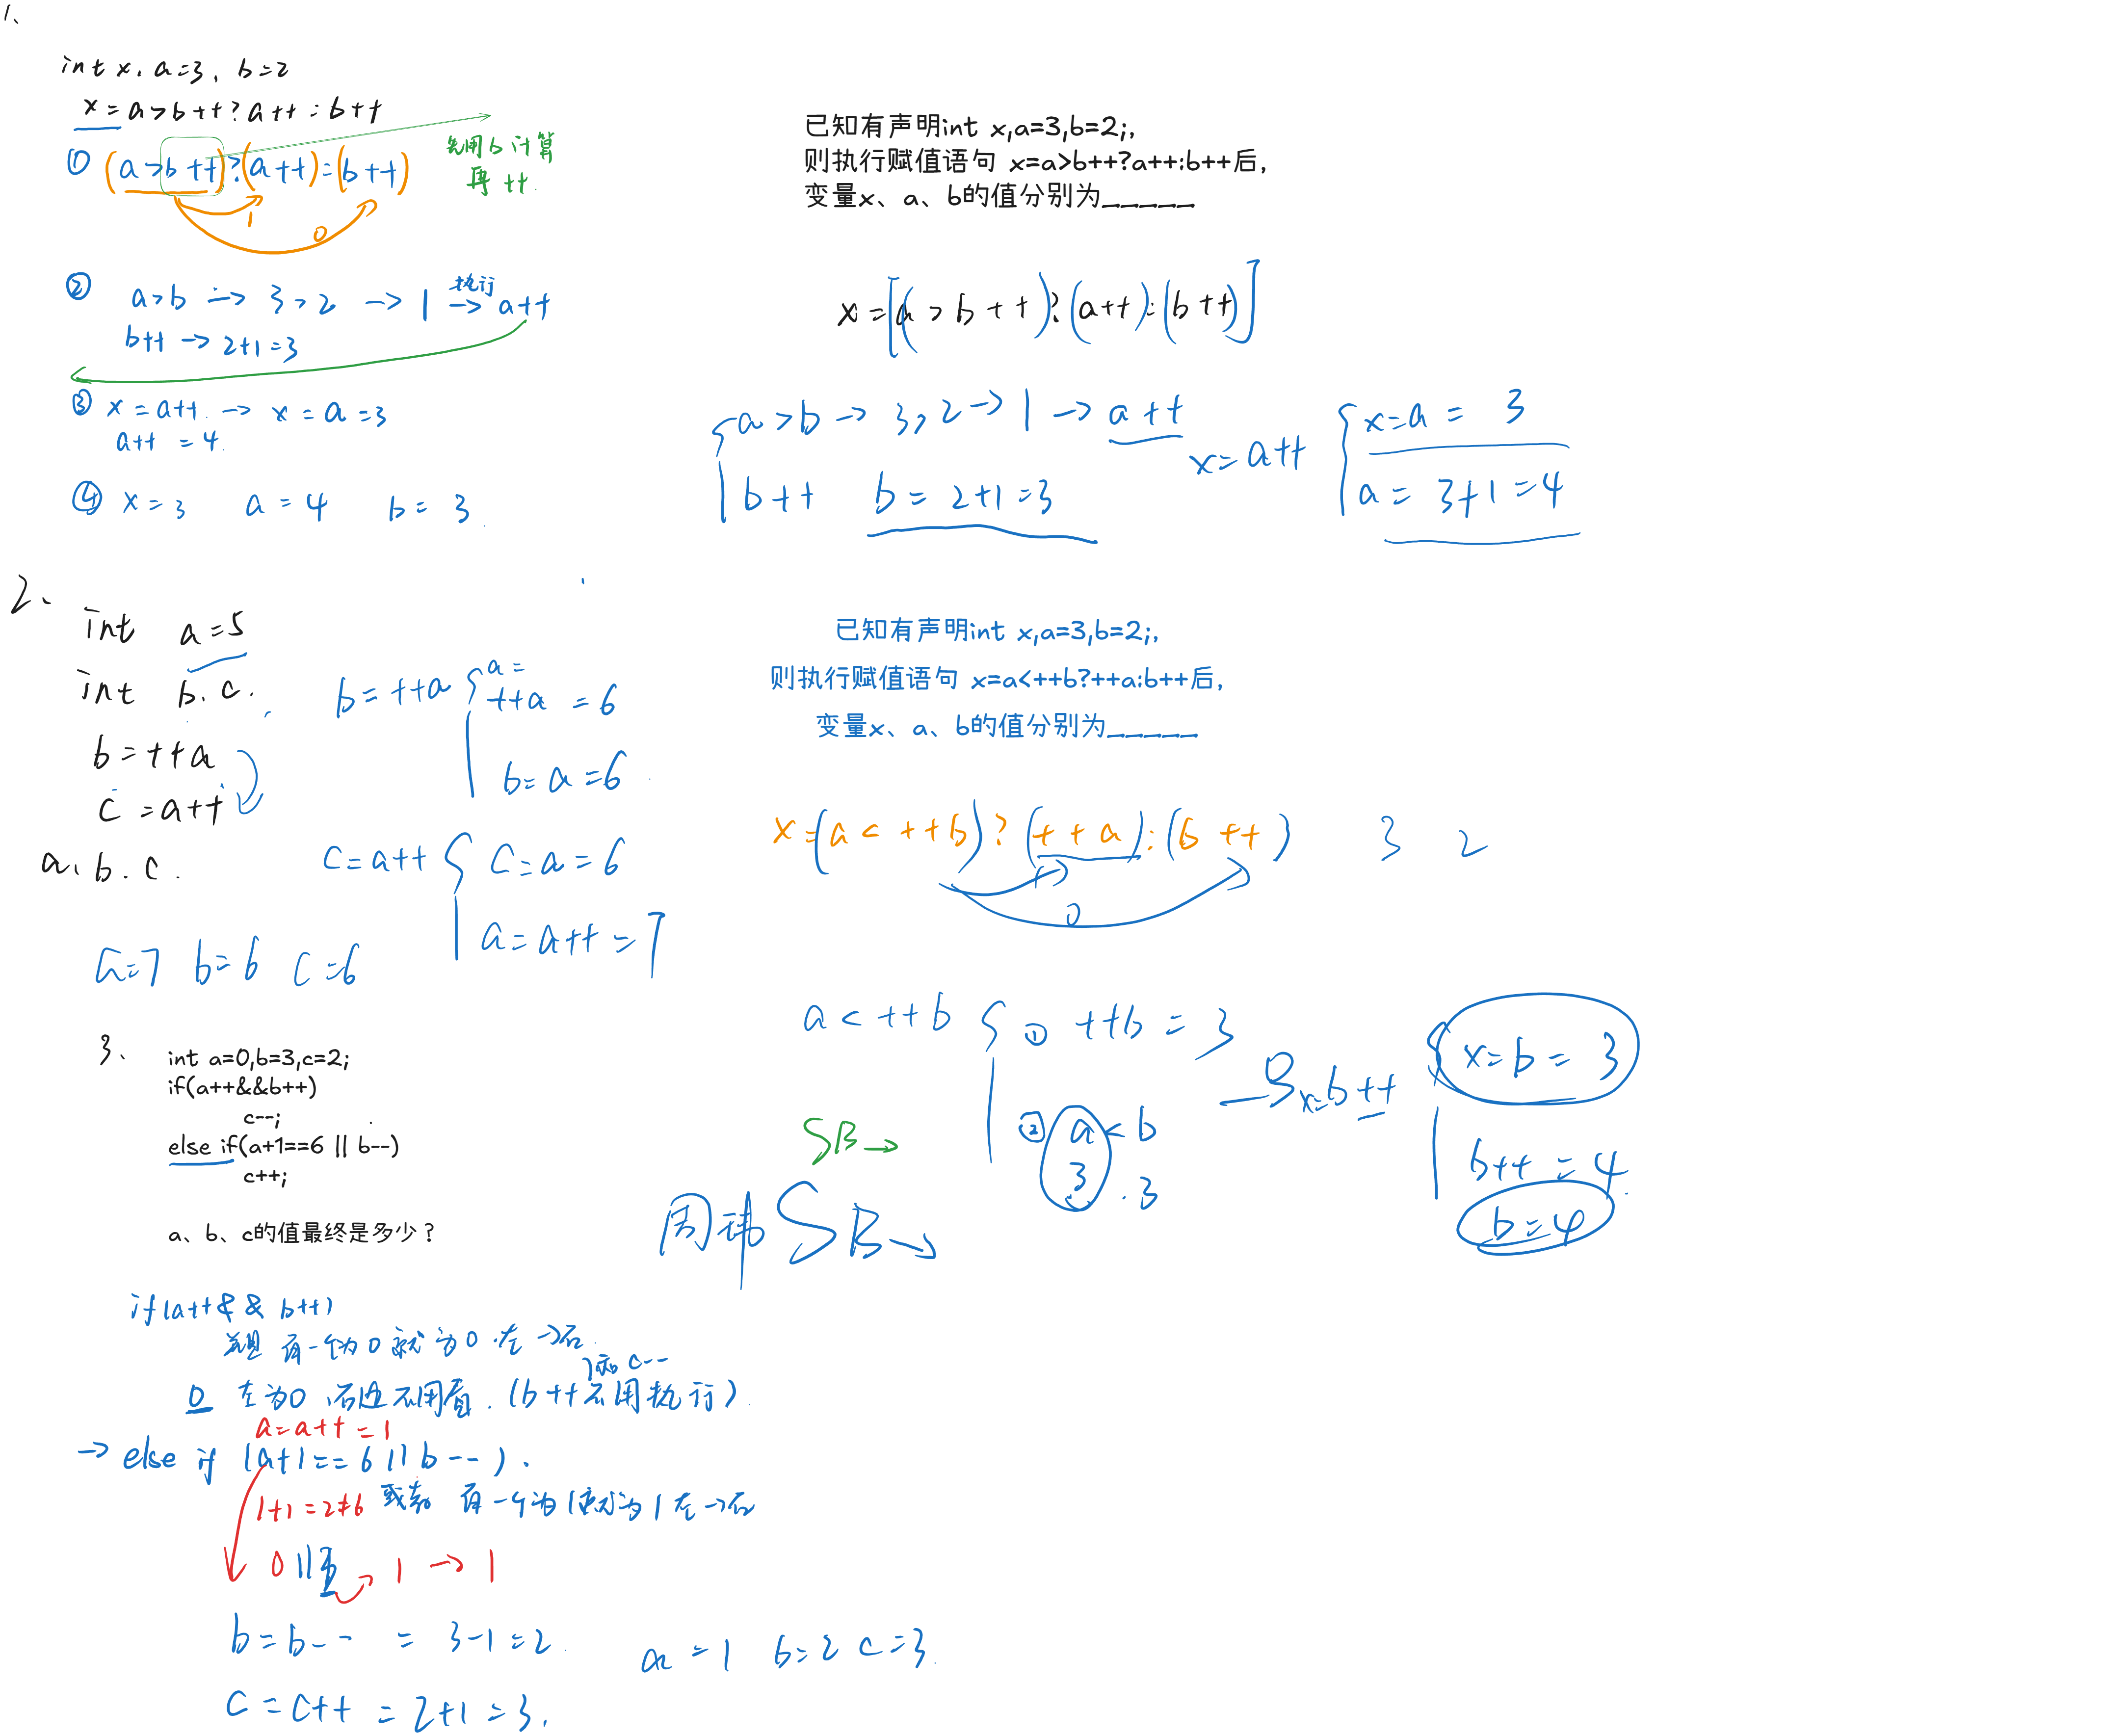 1、
int x, a=3, b=2
x=a>b++?a++:b++
① (a>b++)?(a++):(b++)
先用b计算
再++.
1
0
② a>b → 3>2 → 1 执行→ a++
b++ → 2+1=3
③ x=a++. → x=a=3
a++ =4.
④ x=3 a=4 b=3.
已知有声明int x,a=3,b=2;,
则执行赋值语句 x=a>b++?a++:b++后,
变量x、a、b的值分别为_____
x=[(a>b++)?(a++):(b++)]
a>b → 3>2 → 1 → a++
b++ b=2+1=3
x=a++
x=a=3
a=3+1=4
2、
int a=5
int b.c.
b=++a
c=a++
a、b.c.
b=++a
a=
++a=6
b=a=6
c=a++
c=a=6
a=a++=7
a=7 b=6 c=6
已知有声明int x,a=3,b=2;,
则执行赋值语句 x=a<++b?++a:b++后,
变量x、a、b的值分别为_____
x=(a<++b)?(++a):(b++) 3 2
0
a<++b
① ++b=3
② a<b
3.3
x=b++
x=b=3
b++=4
b=4
SB→
SB→
3、
int a=0,b=3,c=2;
if(a++&&b++)
c--;
else if(a+1==6 || b--)
c++;
a、b、c的值最终是多少?
if(a++&& b++)
有一个为0就为0.左→右.
c--
0 左为0,右边不用看.(b++不用执行).
a=a++=1
→ else if (a+1==6||b--).
1+1=2≠6 或 有一个为1就为1 左→右
0||b 1 → 1
b=b-- = 3-1=2.
c=c++ = 2+1=3.
a=1 b=2 c=3.